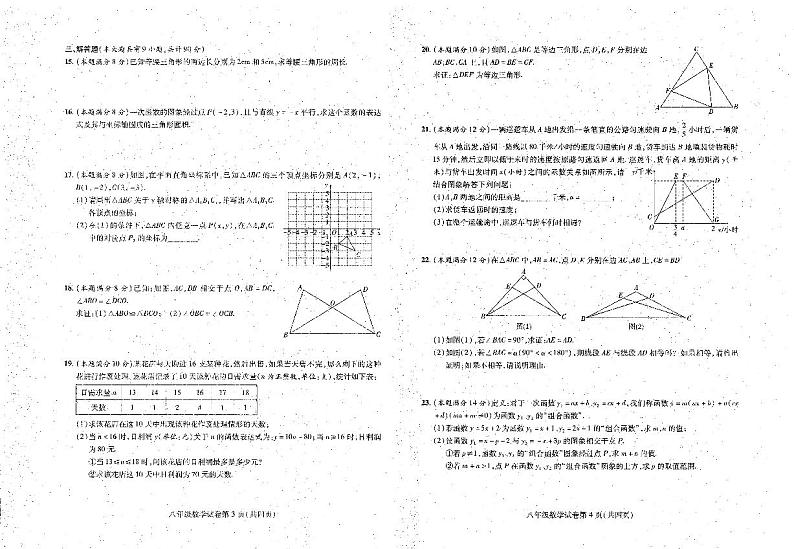 三、解答题(本大题共有9小题,共计90分)
15.(本题满分8分)已知等腰三角形的两边长分别为2cm和5cm,求等腰三角形的周长.
16.(本题满分8分)一次函数的图象经过点P(-2,3),且与直线y=-x平行,求这个函数的表达
式及其与坐标轴围成的三角形面积.
17.(本题满分8分)如图,在平面直角坐标系中,已知△ABC的三个顶点坐标分别是A(2,-1);
B(1,-2),C(3,-3).
(1)若画出△ABC关于y轴对称的△A₁B₁C₁,并写出△A₁B₁C₁
各顶点的坐标;
(2)在(1)的条件下,△ABC内任意一点P(x,y),在△A₁B₁C₁
中的对应点P₁的坐标为______.
18.(本题满分8分)已知:如图,AC,DB相交于点O,AB=DC,
∠ABO=∠DCO.
求证:(1)△ABO≌△DCO;(2)∠OBC=∠OCB.
A D O B C
19.(本题满分10分)某花店每天购进16支某种花,然后出售,如果当天售不完,那么剩下的这种
花进行作废处理.该花店记录了10天该种花的日需求量(n为正整数,单位:支),统计如下表:
日需求量n 13 14 15 16 17 18
天数 1 1 2 4 1 1
(1)求该花店在这10天中出现该种花作废处理情形的天数;
(2)当n<16时,日利润y(单位:元)关于n的函数表达式为:y=10n-80;当n≥16时,日利润
为80元.
①当13≤n≤18时,问该花店的日利润最多是多少元?
②求该花店这10天中日利润为70元的天数.
八年级数学试卷第3页(共四页)
20.(本题满分10分)如图,△ABC是等边三角形,点D,E,F分别在边
AB,BC,CA上,且AD=BE=CF.
求证:△DEF为等边三角形.
C E F A D B
21.(本题满分12分)一辆巡逻车从A地出发沿一条笔直的公路匀速驶向B地,2/5小时后,一辆货
车从A地出发,沿同一路线以80千米/小时的速度匀速驶向B地,货车到达B地填装货物耗时
15分钟,然后立即以低于来时的速度按原路匀速返回A地.巡逻车、货车离A地的距离y(千
米)与货车出发时间x(小时)之间的关系如图所示,请
结合图象解答下列问题:
(1)A,B两地之间的距离是______千米,a=______;
(2)求货车返回时的速度;
(3)在整个运输途中,巡逻车与货车何时相遇?
y/千米 E F D C G 3/4 a 2 x/小时
22.(本题满分12分)在△ABC中,AB=AC,点D,E分别在边AC,AB上,CE=BD
A E D B C
图(1)
A E D O B C
图(2)
(1)如图(1),若∠BAC=90°,求证:AE=AD.
(2)如图(2),若∠BAC=α(90°<α<180°),则线段AE与线段AD相等吗?如果相等,请给出
证明;如果不相等,请说明理由.
23.(本题满分14分)定义:对于一次函数y₁=ax+b,y₂=cx+d,我们称函数y=m(ax+b)+n(cx
+d)(ma+nc≠0)为函数y₁,y₂的“组合函数”.
(1)若函数y=5x+2为函数y₁=x+1,y₂=2x-1的“组合函数”,求m,n的值;
(2)设函数y₁=x-p-2与y₂=-x+3p的图象相交于点P.
①若p≠1,函数y₁,y₂的“组合函数”图象经过点P,求m+n的值;
②若m+n>1,点P在函数y₁,y₂的“组合函数”图象的上方,求p的取值范围.
八年级数学试卷第4页(共四页)